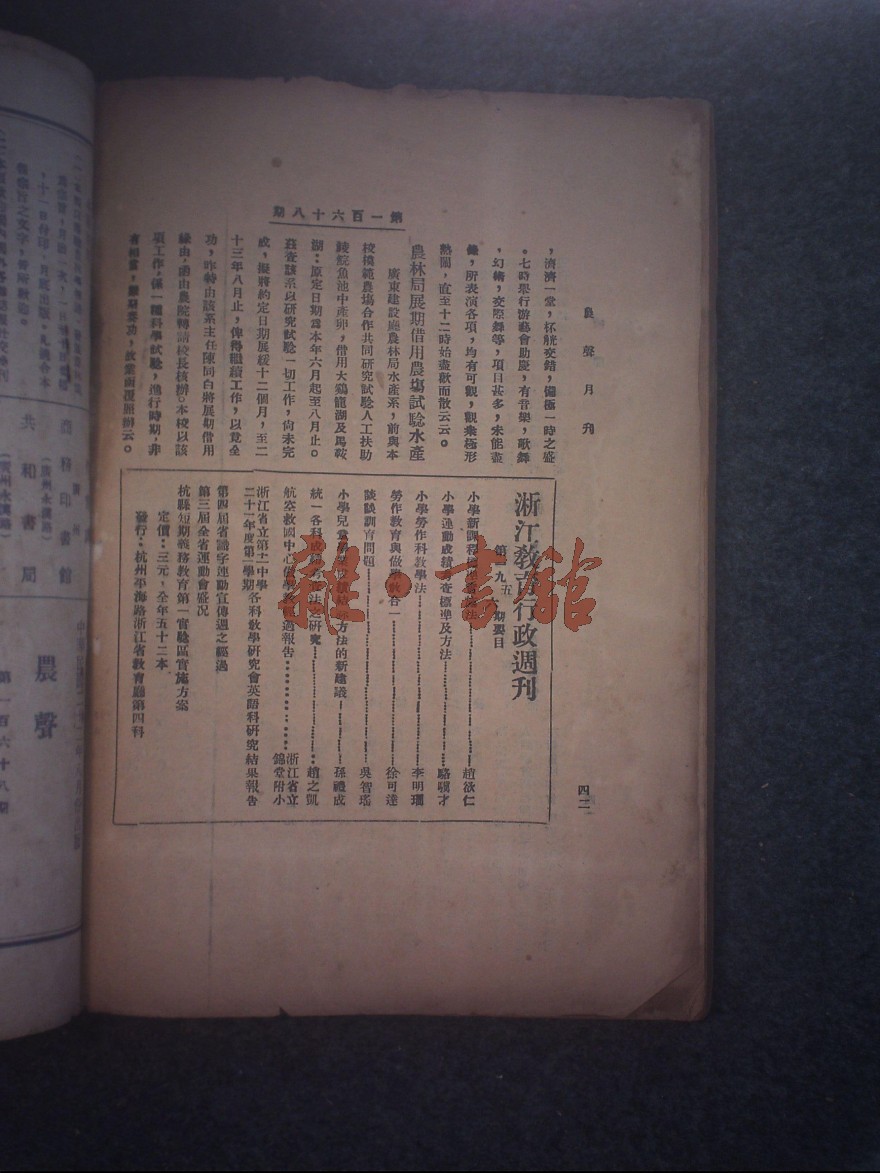 農聲月刊
第一百六十八期
四二
，濟濟一堂，杯觥交錯，備極一時之盛
。七時舉行游藝會助慶，有音樂，歌舞
，幻術，交際舞等，項目甚多，未能盡
錄，所表演各項，均有可觀，觀衆極形
熱鬧，直至十二時始盡歡而散云云。
農林局展期借用農場試驗水產
廣東建設廳農林局水產系，前與本
校模範農場合作共同研究試驗人工扶助
鯪鯇魚池中產卵，借用大鷄龍湖及馬鞍
湖：原定日期爲本年六月起至八月止。
茲查該系以研究試驗一切工作，尙未完
成，擬將約定日期展緩十二個月，至二
十三年八月止，俾得繼續工作，以竟全
功，昨特由該系主任陳同白將展期借用
緣由，函由農院轉請校長核辦。本校以該
項工作，係一種科學試驗，進行時期，非
有相當，難易奏功，故業函覆照辦云。
浙江教育行政週刊
第 九五 六期要目
小學新課程 趙欲仁
小學運動成績 查標準及方法 駱爾才
小學勞作科教學法 李明珊
勞作教育與做學教合一 徐可達
談談訓育問題 吳智瑤
小學兒童 方法的新建議 孫禮成
統一各科成績考查法之研究 趙之凱
航空救國中心 過報告 浙江省立錦堂附小
浙江省立第二中學
二十一年度第一學期各科敎學研究會英語科研究結果報告
第四屆省識字運動宣傳週之經過
第三屆全省運動會盛況
杭縣短期義務教育第一實驗區實施方案
定價：三元，全年五十二本
發行：杭州平海路浙江省敎育廳第四科
商科印書館
（廣州永漢路）
共和書局
（廣州永漢路）
農聲
第一百六十八期
雜·書館